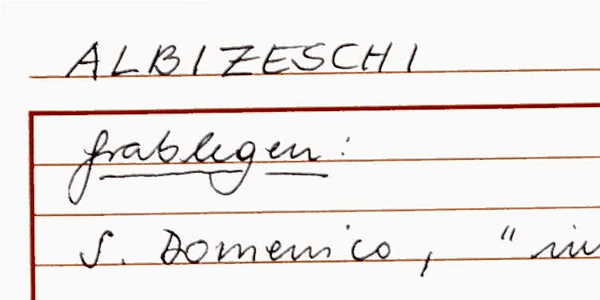 ALBIZESCHI
Grablegen:
S. Domenico, "in